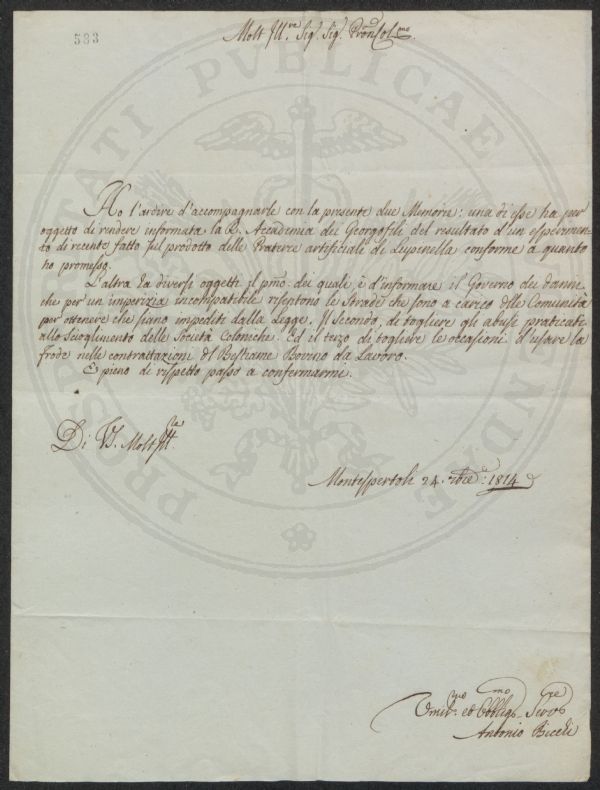 583
Molt Ill.re Sig.r Sig.r Pron Col.mo
PROSPERITATI PVBLICAE AVGENDAE
Ho l'ardire d'accompagnarle con la presente due Memorie: una di esse ha per
oggetto di rendere informata la R. Accademia dei Georgofili del resultato d'un esperimen-
to di recente fatto sul prodotto delle Praterie artificiali di Lupinella conforme a quanto
ho promesso.
L'altra ha diversi oggetti il pmo. dei quali, è d'informare il Governo dei danni
che per un imperizia incompatibile risentono le Strade che sono a carico delle Comunità
per ottenere che siano impediti dalla Legge. Il Secondo, di togliere gli abusi praticati
allo Scioglimento delle Società Coloniche. Ed il terzo di togliere le occasioni d'usare la
frode nelle contrattazioni del Bestiame Bovino da Lavoro.
E pieno di rispetto passo a confermarmi.
Di VS. Molt Ill.
Montespertoli 24. 1814
Umil.mo ed Obblig.mo Serv.re
Antonio